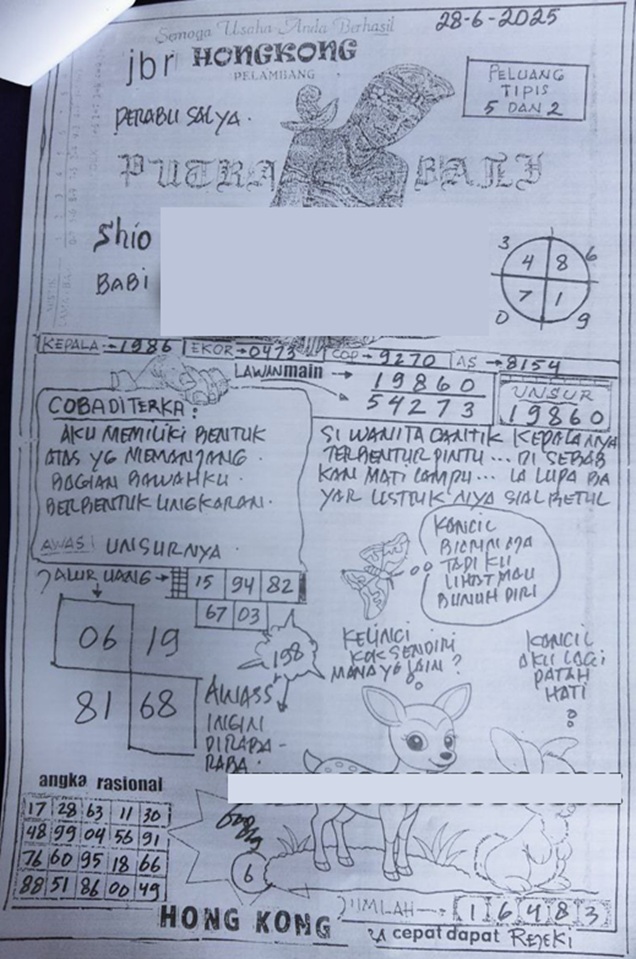 Semoga Usaha Anda Berhasil
28-6-2025
jbr HONGKONG
PELAMBANG
PELUANG
TIPIS
5 DAN 2
PERABU SALYA.
PUTRA BALI
Shio
BABI
3 6
4 8
7 1
0 9
KEPALA→1986 EKOR→0473 COP→9270 AS→8154
LAWANmain → 19860
54273
UNSUR
19860
COBA DITERKA:
AKU MEMILIKI BENTUK
ATAS YG MEMANJANG.
BAGIAN BAWAHKU.
BERBENTUK LINGKARAN.
AWASI UNSURNYA.
SI WANITA CANTIK KEPALANYA
TERBENTUR PINTU... DI SEBAB
KAN MATI LAMPU... IA LUPA BA
YAR LISTRIK NYA SIAL BETUL
KANCIL
TADI KU
LIHAT MAU
BUNUH DIRI
JALUR UANG→ 15 94 82
67 03
06 19
81 68
198
AWASS
INGIN
DIRABA-
RABA.
KELINCI
KOK SENDIRI
MANA YG LAIN?
KANCIL
AKU LAGI
PATAH
HATI
angka rasional
17 28 63 11 30
48 99 04 56 91
76 60 95 18 66
88 51 86 00 49
6
JUMLAH→ 1 6 4 8 3
HONG KONG
cepat dapat REJEKI